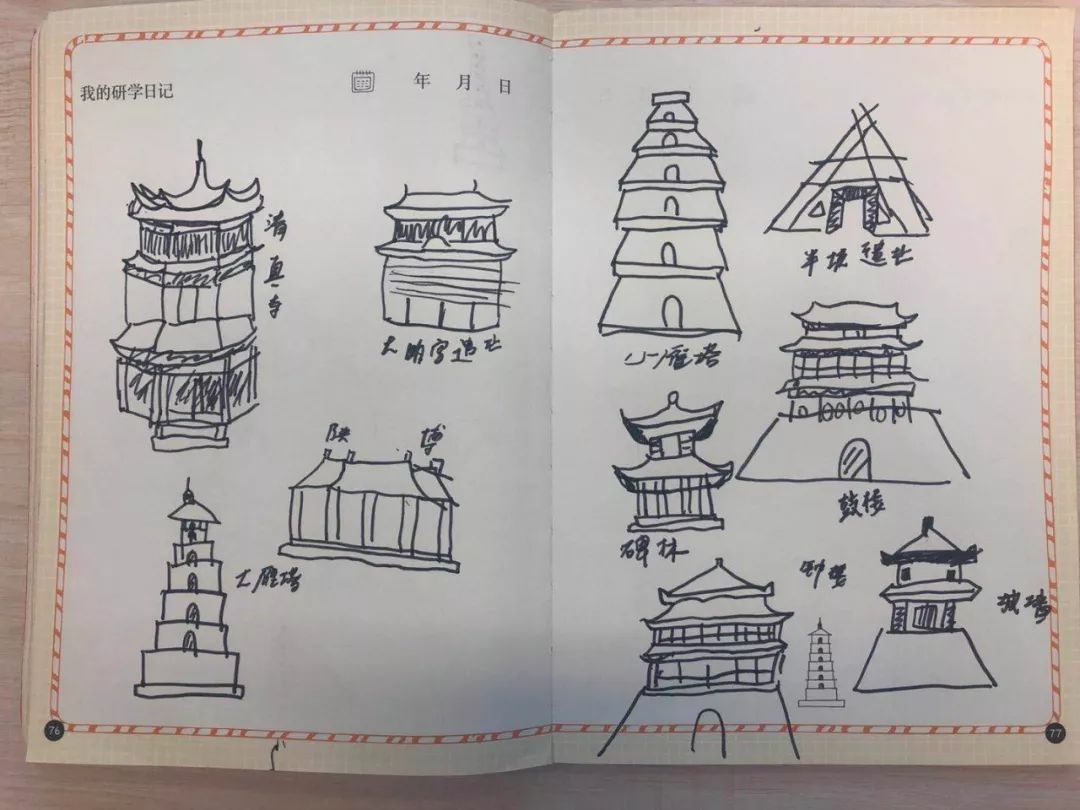 我的研学日记
年 月 日
清真寺
大明宫遗址
陕 博
大雁塔
76
小雁塔
半坡遗址
鼓楼
碑林
钟楼
城墙
77